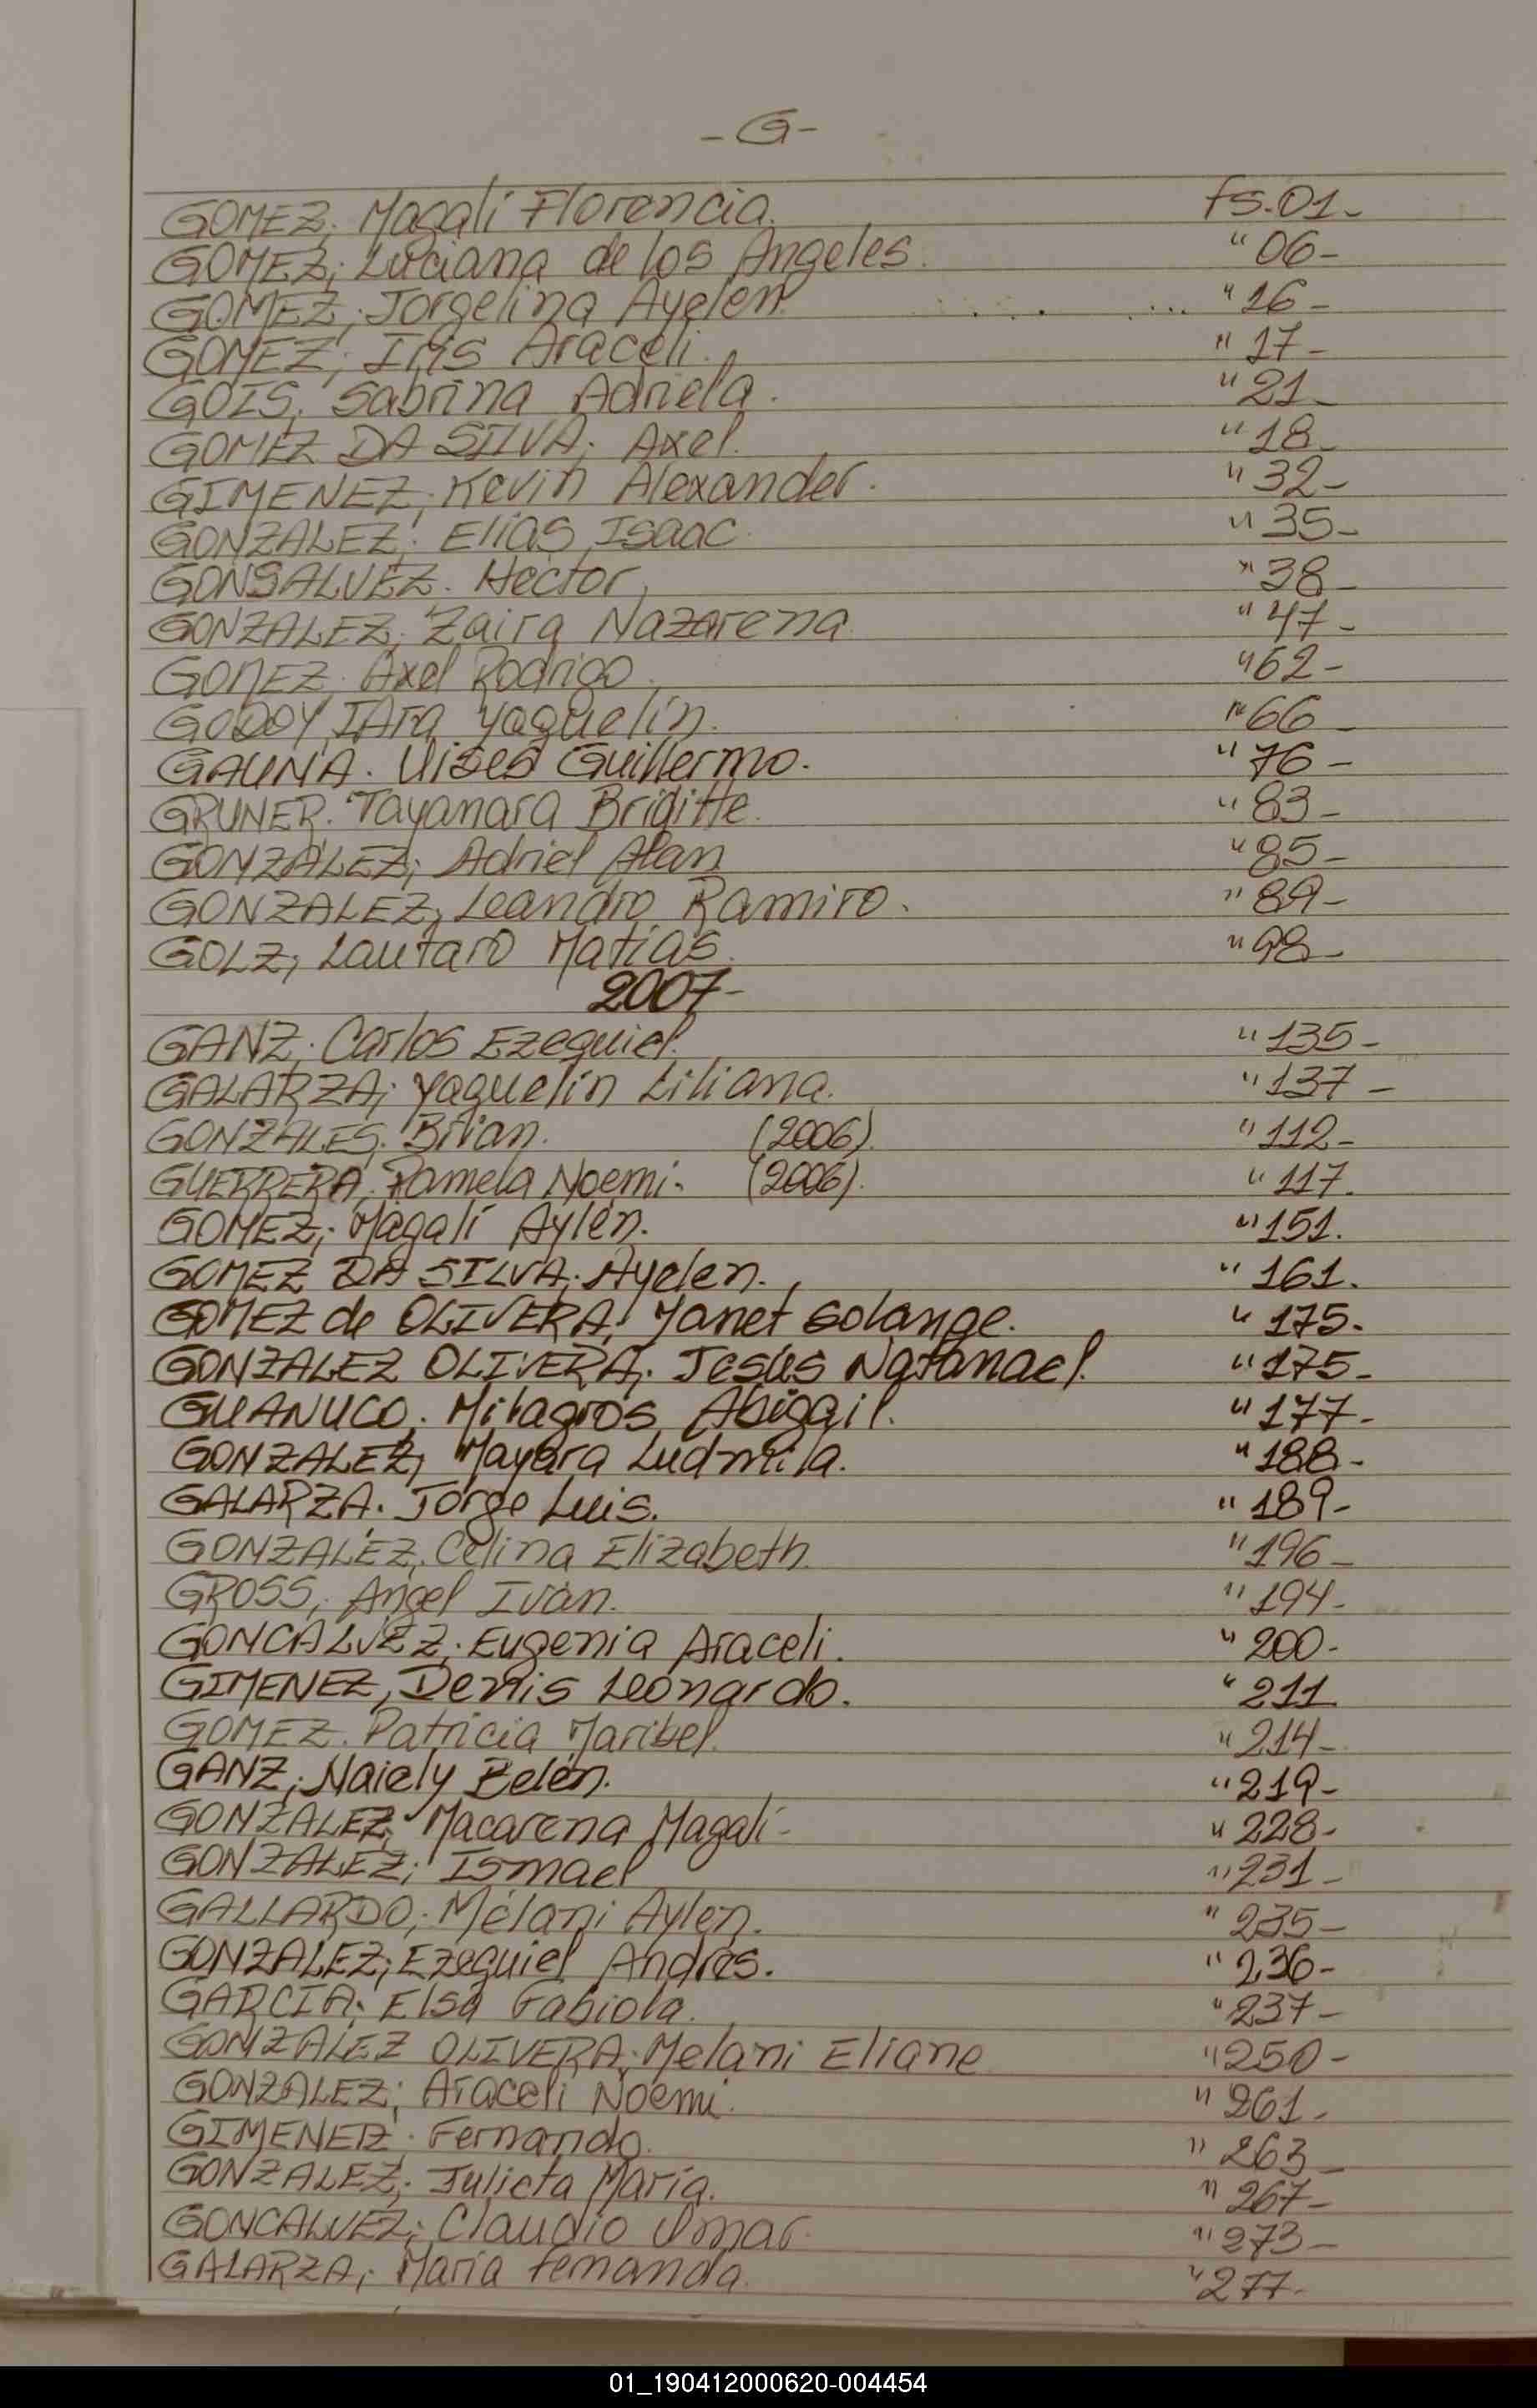 -G-
GOMEZ; Magali Florencia. fs. 01-
GOMEZ; Luciana de los Angeles. " 06-
GOMEZ; Jorgelina Ayelen. ... " 16-
GOMEZ; Iris Araceli. " 17-
GOIS; Sabrina Adriela. " 21-
GOMEZ DA SILVA; Axel. " 18-
GIMENEZ; Kevin Alexander. " 32-
GONZALEZ; Elias Isaac. " 35-
GONSALVEZ. Hector " 38-
GONZALEZ; Zaira Nazarena " 47-
GOMEZ; Axel Rodrigo. " 62-
GODOY, IAra Yaquelin. " 66-
GAUNA. Ulises Guillermo. " 76-
GRUNER. Tayanara Brigitte. " 83-
GONZALEZ; Adriel Alan " 85-
GONZALEZ; Leandro Ramiro. " 89-
GOLZ; Lautaro Matias. " 98-
2007-
GANZ; Carlos Ezequiel. " 135-
GALARZA; Yaquelin Liliana. " 137-
GONZALES; Brian. (2006). " 112-
GUERRERA; Pamela Noemi. (2006). " 117.
GOMEZ; Magalí Aylén. " 151.
GOMEZ DA SILVA; Ayelen. " 161.
GOMEZ de OLIVERA; Yanet Solange. " 175-
GONZALEZ OLIVERA; Jesús Natanael. " 175-
GUANUCO; Milagros Abigail. " 177-
GONZALEZ; Mayara Ludmila. " 188-
GALARZA. Jorge Luis. " 189-
GONZALEZ; Celina Elizabeth. " 196-
GROSS; Angel Iván. " 194-
GONCALVEZ; Eugenia Araceli. " 200-
GIMENEZ, Denis Leonardo. " 211
GOMEZ. Patricia Maribel. " 214-
GANZ; Naiely Belén. " 219-
GONZALEZ; Macarena Magalí- " 228-
GONZALEZ; Ismael " 231-
GALLARDO; Melani Aylen. " 235-
GONZALEZ; Ezequiel Andrés. " 236-
GARCIA; Elsa Fabiola. " 237-
GONZALEZ OLIVERA; Melani Eliane " 250-
GONZALEZ; Araceli Noemi. " 261-
GIMENEZ; Fernando. " 263-
GONZALEZ; Julieta María. " 267-
GONCALVEZ; Claudio Omar. " 273-
GALARZA; María Fernanda. " 277-
01_190412000620-004454